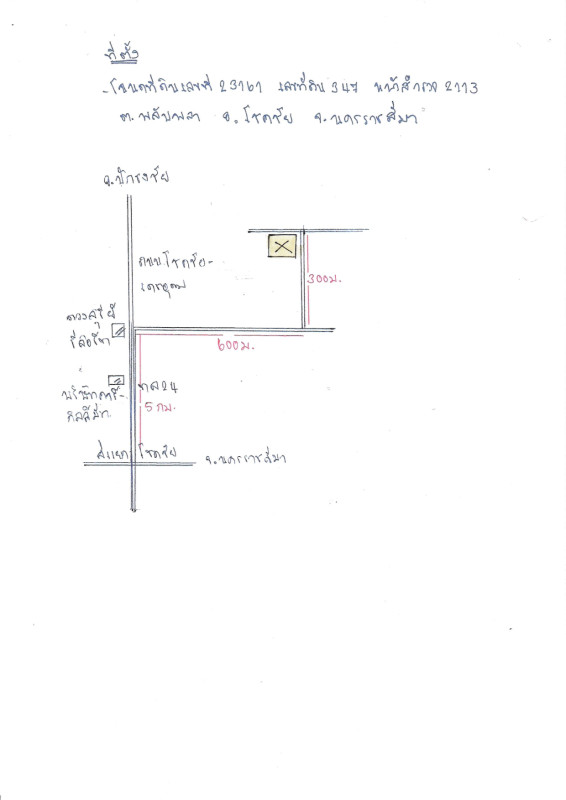 ที่ตั้ง
- โฉนดที่ดินเลขที่ 23161 เลขที่ดิน 347 หน้าสำรวจ 2113
ต.พลับพลา อ.โชคชัย จ.นครราชสีมา
อ.ปักธงชัย
ถนนโชคชัย-
เดชอุดม
300ม.
ดวงสุรีย์
รีสอร์ท
600ม.
ทล 24
5 กม.
สี่แยก โชคชัย
จ.นครราชสีมา